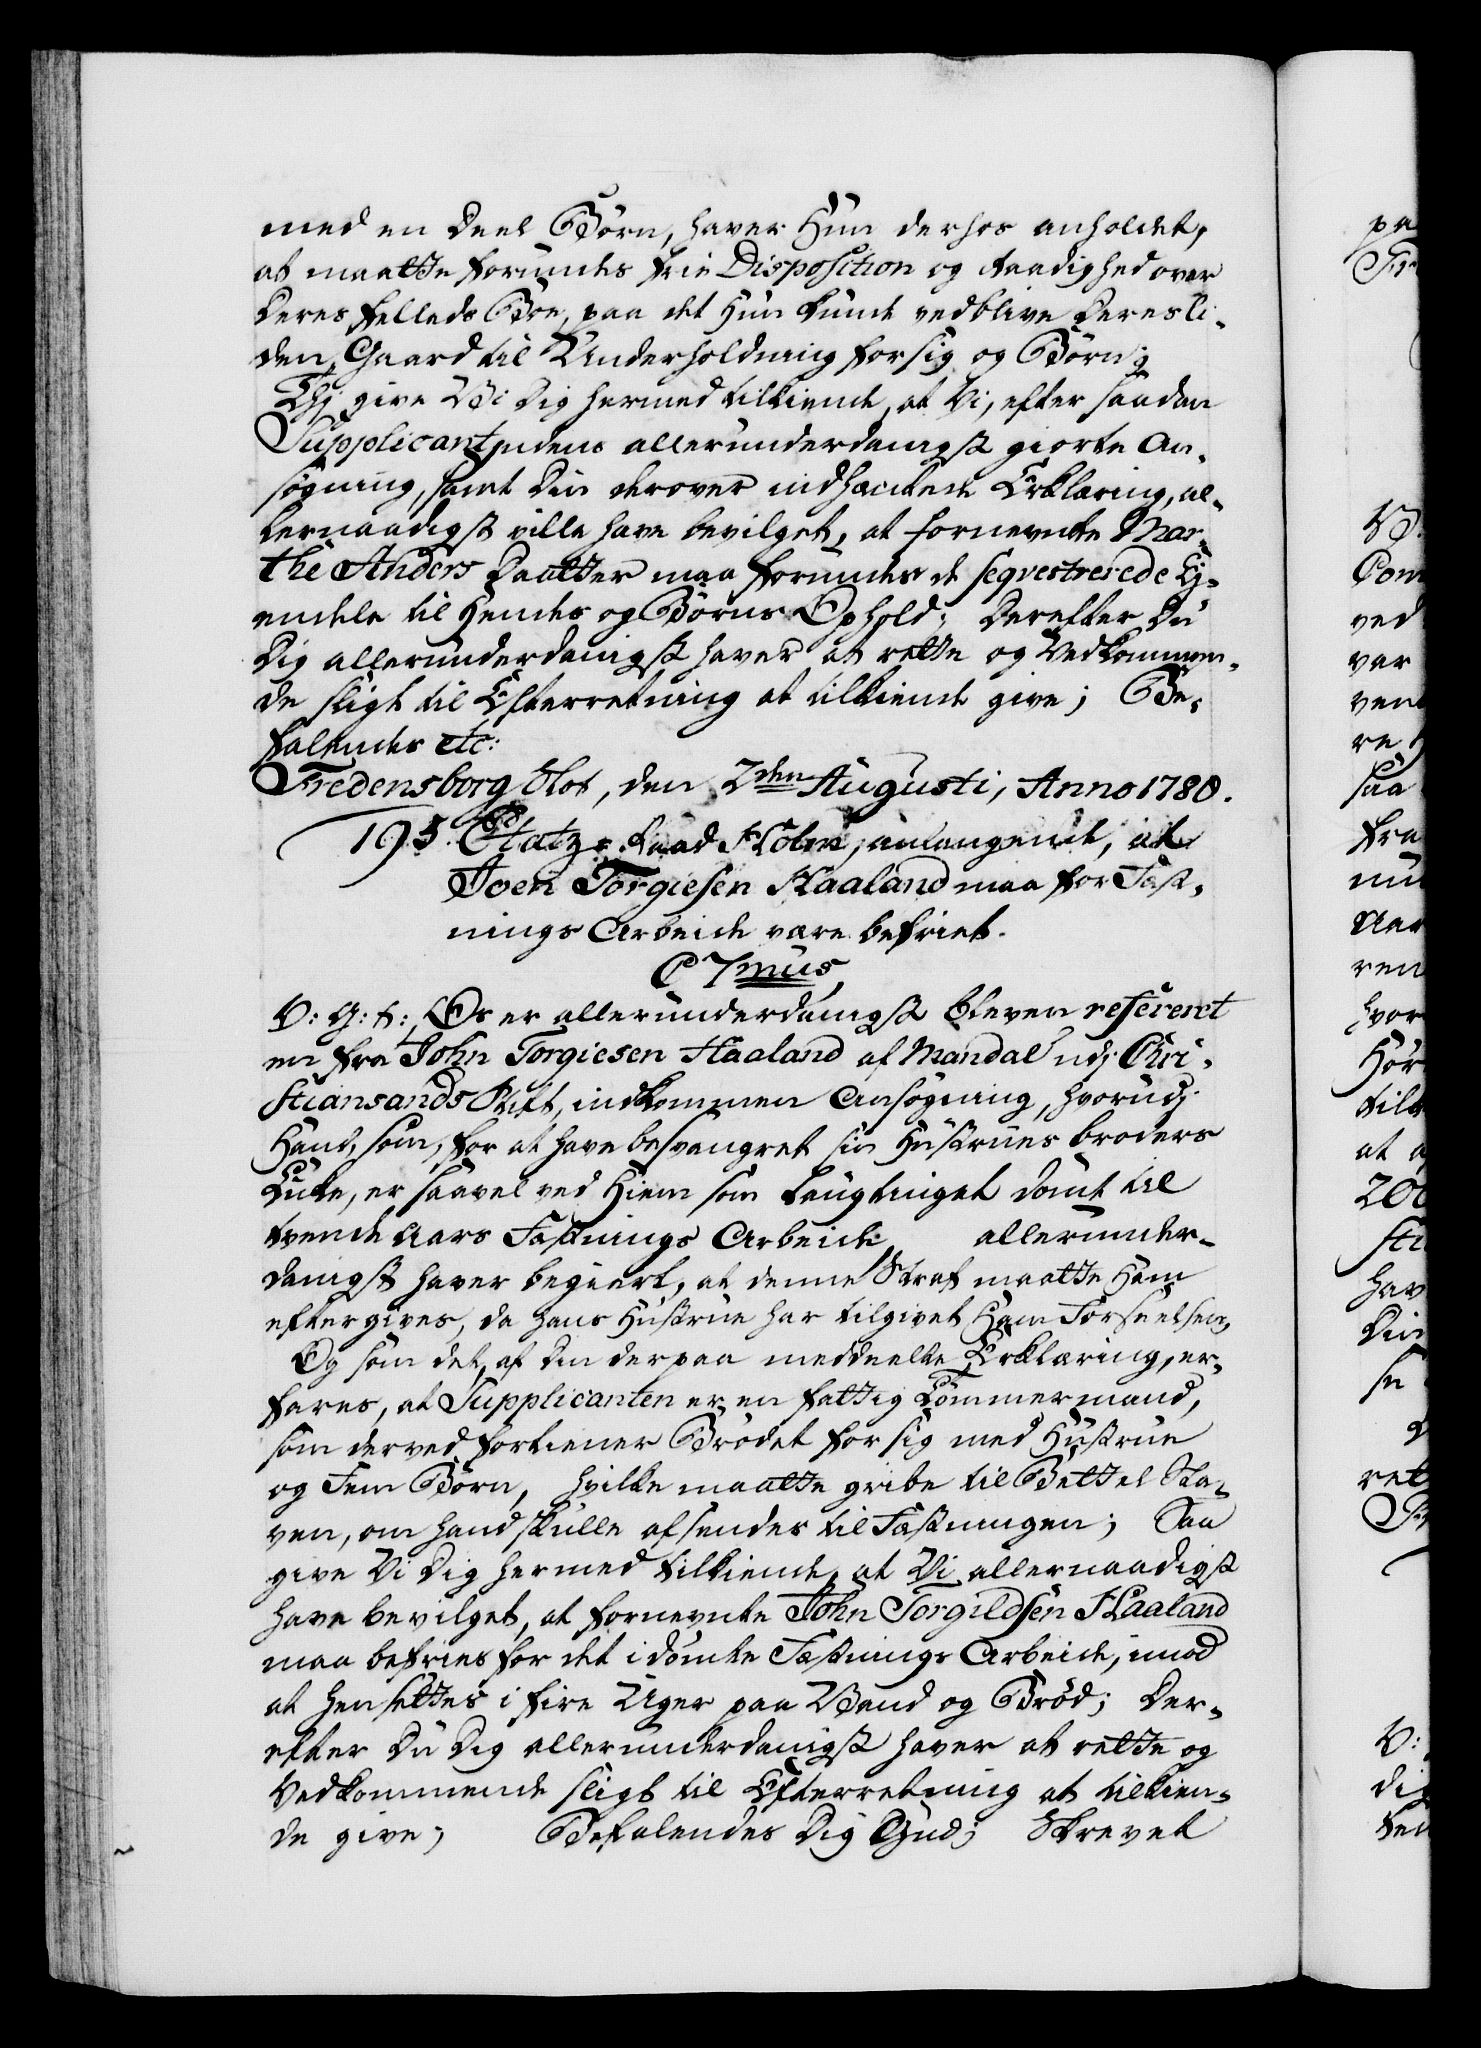 med en Deel Börn, haver Hun derhos anholdet,
at maatte forundes frie Disposition og Raadighed over
deres Fælleds Boe, paa det Hun kunde vedblive deres li-
den Gaard til Underholdning for sig og Börn;
Thj give Vi Dig hermed tilkiende, at Vi, efter saadan
Supplicantindens allerunderdanigst giorte An-
søgning, samt Din derover indhæntede Erklæring, al-
lernaadigst ville have bevilget, at fornevnte Mar-
the Anders Daatter maa forundes de seqvestrerede Ej-
endele til Hendes og Börns Ophold; Derefter Du
Dig allerunderdanigst haver at rette og Vedkommen-
de sligt til Efterretning at tilkiende give; Be-
falendes etc:
Fredensborg Slot, den 2den Augusti, Anno 1780.
195. Etatz-Raad Holm, anlangende, at
Joen Torgiesen Haaland maa for Fæst-
nings Arbeide være befriet.
C 7mus
V: G: T: Os er allerunderdanigst bleven refereret
en fra John Torgiesen Haaland af Mandal udj Chri-
stiansands Stift, indkommen Ansøgning, hvorudj
Hand, som, for at have besvangret sin Hustrues Broders
Enke, er saavel ved Hiem som Laugtinget dömt til
tvende Aars Fæstnings Arbeide allerunder-
danigst haver begiert, at denne Straf maatte Ham
eftergives, da hans Hustrue har tilgivet Ham Forseelsen,
Og som det, af Din derpaa meddeelte Erklæring, er-
fares, at Supplicanten er en fattig Tömmermand,
som derved fortiener Brödet for sig med Hustrue
og Fem Börn, hvilke maatte gribe til Bettel Sta-
ven, om hand skulle afsendes til Fæstningen; Saa
give Vi Dig hermed tilkiende, at Vi allernaadigst
have bevilget, at fornevnte John Torgildsen Haaland
maa befries for det idömte Fæstnings Arbeide, imod
at hensettes i fire Uger paa Vand og Bröd; Der-
efter Du Dig allerunderdanigst haver at rette og
Vedkommende sligt til Efterretning at tilkien-
de give; Befalendes Dig Gud; Skrevet